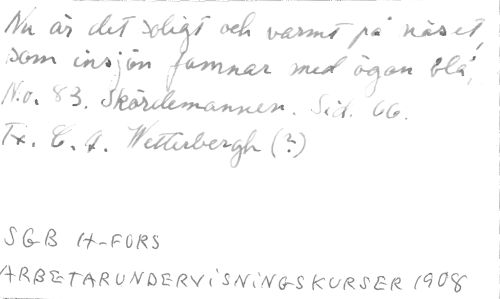 Nu är det soligt och varmt på näset,
som insjön famnar med ögon blå,
No. 83. Skördemannen. Sid. 66.
Tx. C. A. Wetterbergh (?)
SGB H-FORS
ARBETARUNDERVISNINGSKURSER 1908